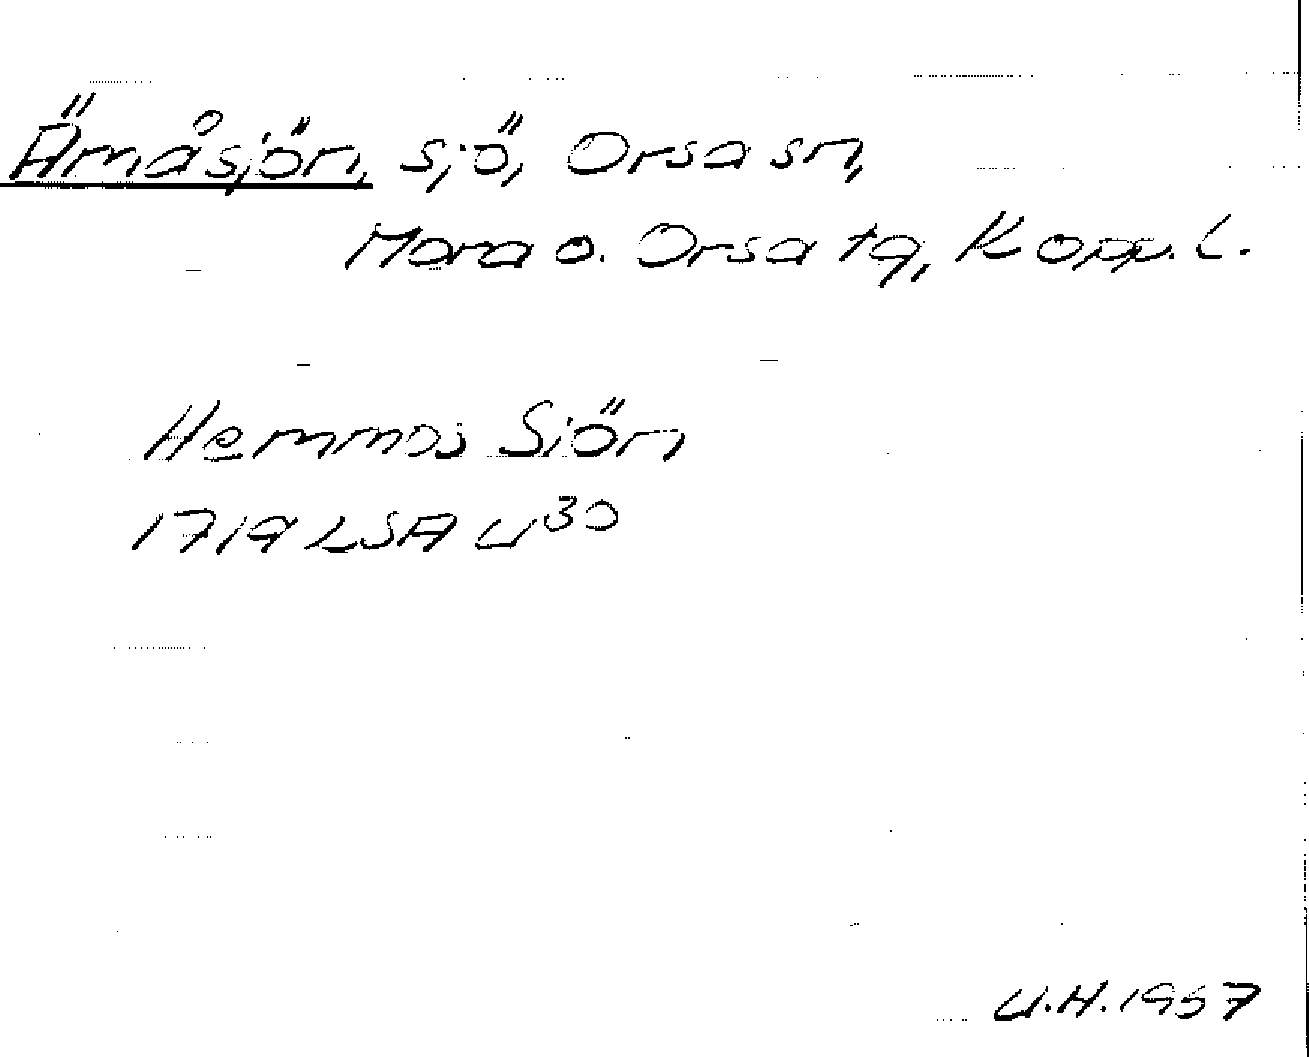 Ämåsjön, sjö, Orsa sn,
Mora o. Orsa tg, Kopp. l.
Hemmos Siön
1719 LSA U30
U.H. 1957